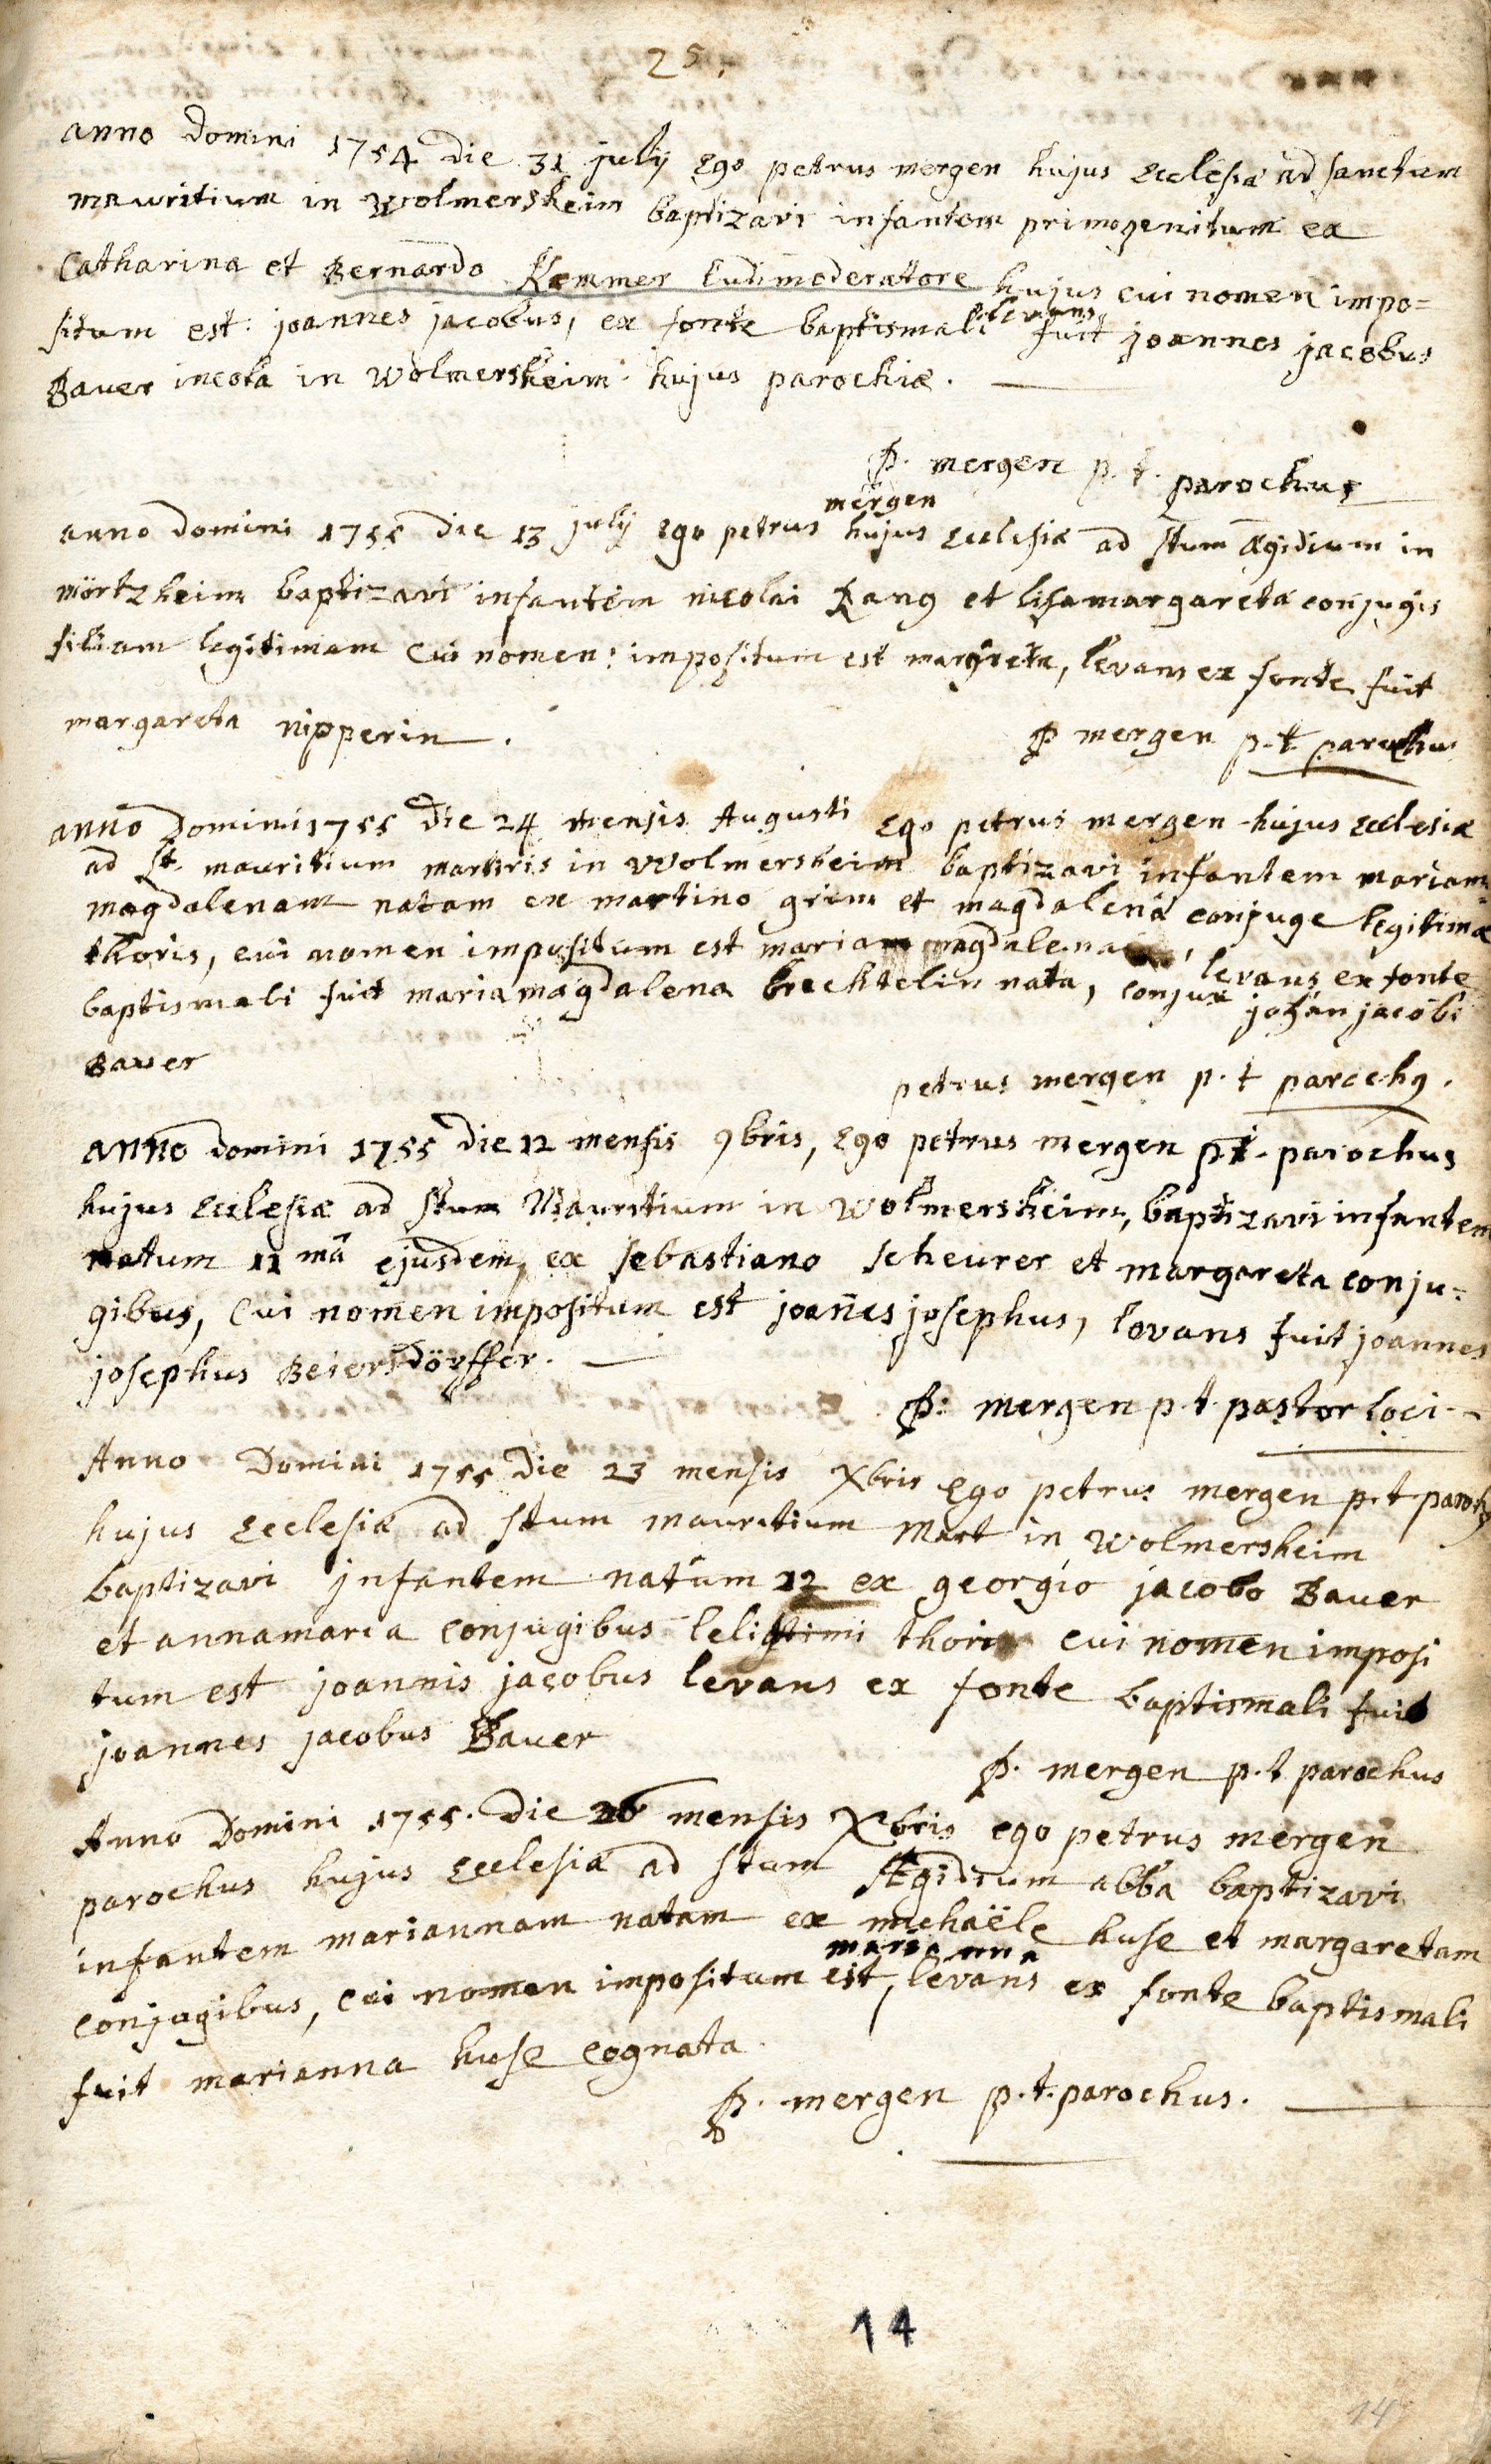 25.
anno Domini 1754 die 31 julij Ego petrus mergen hujus Ecclesiæ ad sanctum
mauritium in Wolmersheim baptizavi infantem primogenitum ex
Catharina et Bernardo Kemmer Ludimoderatore hujus cui nomen impo=
situm est: joannes jacobus, ex fonte baptismali levans fuit joannes jacobus
Bauer incola in Wolmersheim hujus parochiæ.
P. mergen p.t. parochus
anno domini 1755 die 13 julij Ego petrus mergen hujus Ecclesiæ ad stum Ægidium in
mörtzheim baptizavi infantem nicolai Rang et lisamargareta conjugis
filiam legitimam cui nomen: impositum est margreta, levans ex fonte fuit
margareta nipperin.
P mergen p.t parochus
anno Domini 1755 die 24 mensis Augusti Ego petrus mergen hujus Ecclesiæ
ad St. mauritium martiris in Wolmersheim baptizavi infantem mariam
magdalenam natam ex martino grim et magdalena conjuge legitimæ
thoris, cui nomen impositum est maria magdalena, levans ex fonte
baptismali fuit mariamagdalena brechtelin nata, conjux johan jacobi
Bauer
petrus mergen p.t parochq.
anno domini 1755 die 12 mensis 9bris, Ego petrus mergen pt. parochus
hujus Ecclesiæ ad stum Mauritium in Wolmersheim, baptizavi infantem
natum 11 mâ ejusdem, ex sebastiano scheurer et margareta conju=
gibus, cui nomen impositum est joañes josephus, levans fuit joannes
josephus Beiersdörffer.
P: mergen p.t. pastor loci
Anno Domini 1755 die 23 mensis Xbris Ego petrus mergen p.t. parochq
hujus Ecclesiæ ad stum mauritium Mart in Wolmersheim
baptizavi jnfantem natum 12 ex georgio jacobo Bauer
et annamaria conjugibus leligtimi thoris cui nomen imposi
tum est joannis jacobus levans ex fonte baptismali fuit
joannes jacobus Bauer
P. mergen p.t parochus
Anno Domini 1755. die 26 mensis Xbris ego petrus mergen
parochus hujus Ecclesiæ ad stum Ægidium abba baptizavi
infantem mariannam natam ex michaële huse et margaretam
conjugibus, cui nomen impositum est marianna, levans ex fonte baptismali
fuit marianna huse cognata
P. mergen p.t. parochus.
14
14